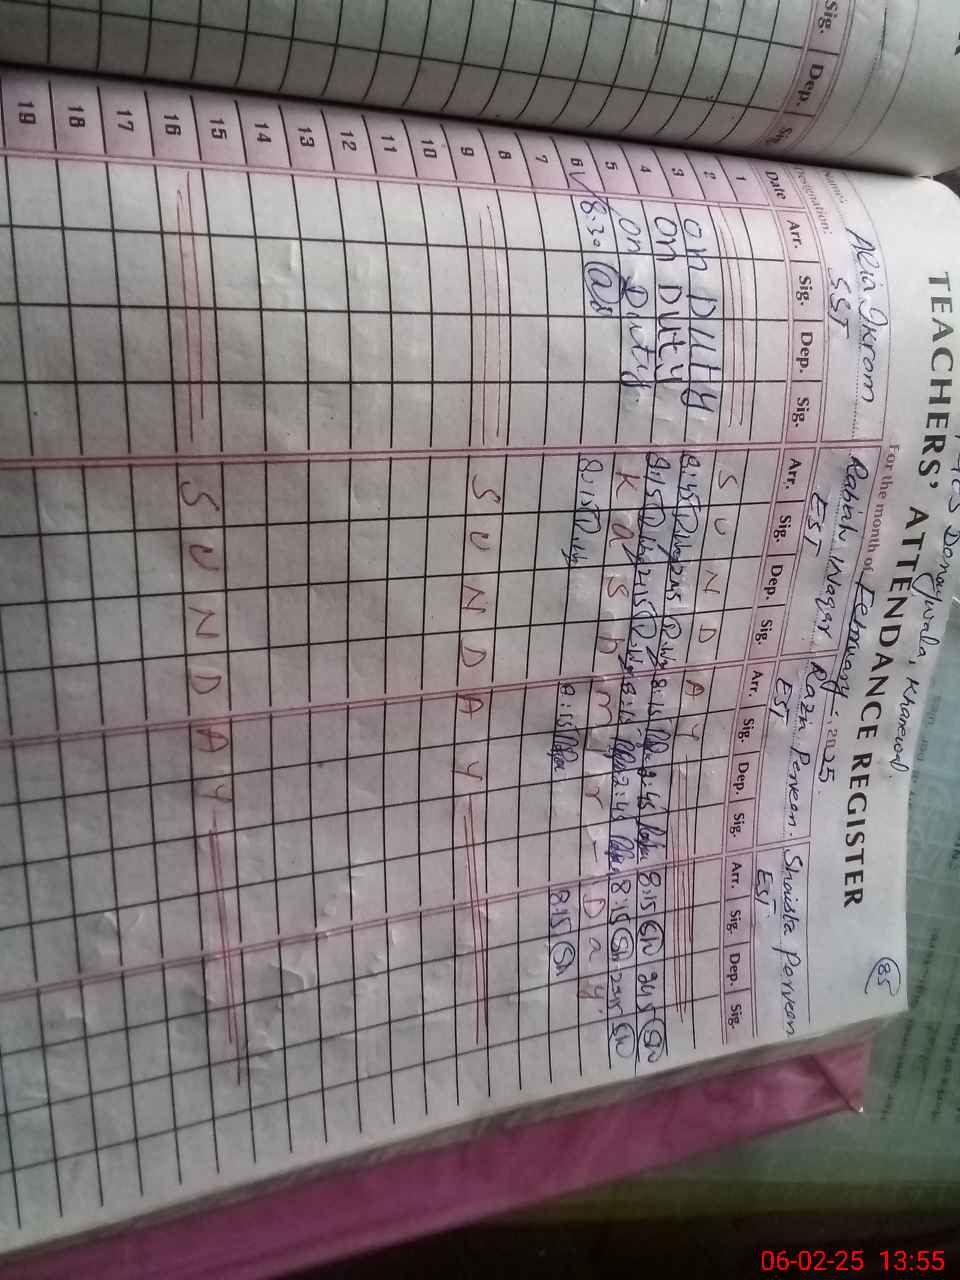 Sig. Dep. Sig.
Donaywala, Khanewal.
TEACHERS' ATTENDANCE REGISTER
85
For the month of February - 2025.
Name: Alia Ikram Rabiah Waqar Razia Perveen. Shaista Perveen
Designation: SST EST EST EST
Date Arr. Sig. Dep. Sig. Arr. Sig. Dep. Sig. Arr. Sig. Dep. Sig. Arr. Sig. Dep. Sig.
1
2 SUNDAY
3 On Duty 8:45 2:45 8:15 2:45 8:15 Sh 245 Sh
4 On Duty 8:15 2:15 8:15 2:45 8:15 Sh 2:45 Sh
5 On Duty Kashmir - Day
6 8:30 8:15 8:15 8:15 Sh
7
8
9 SUNDAY
10
11
12
13
14
15
16 SUNDAY
17
18
19
06-02-25 13:55